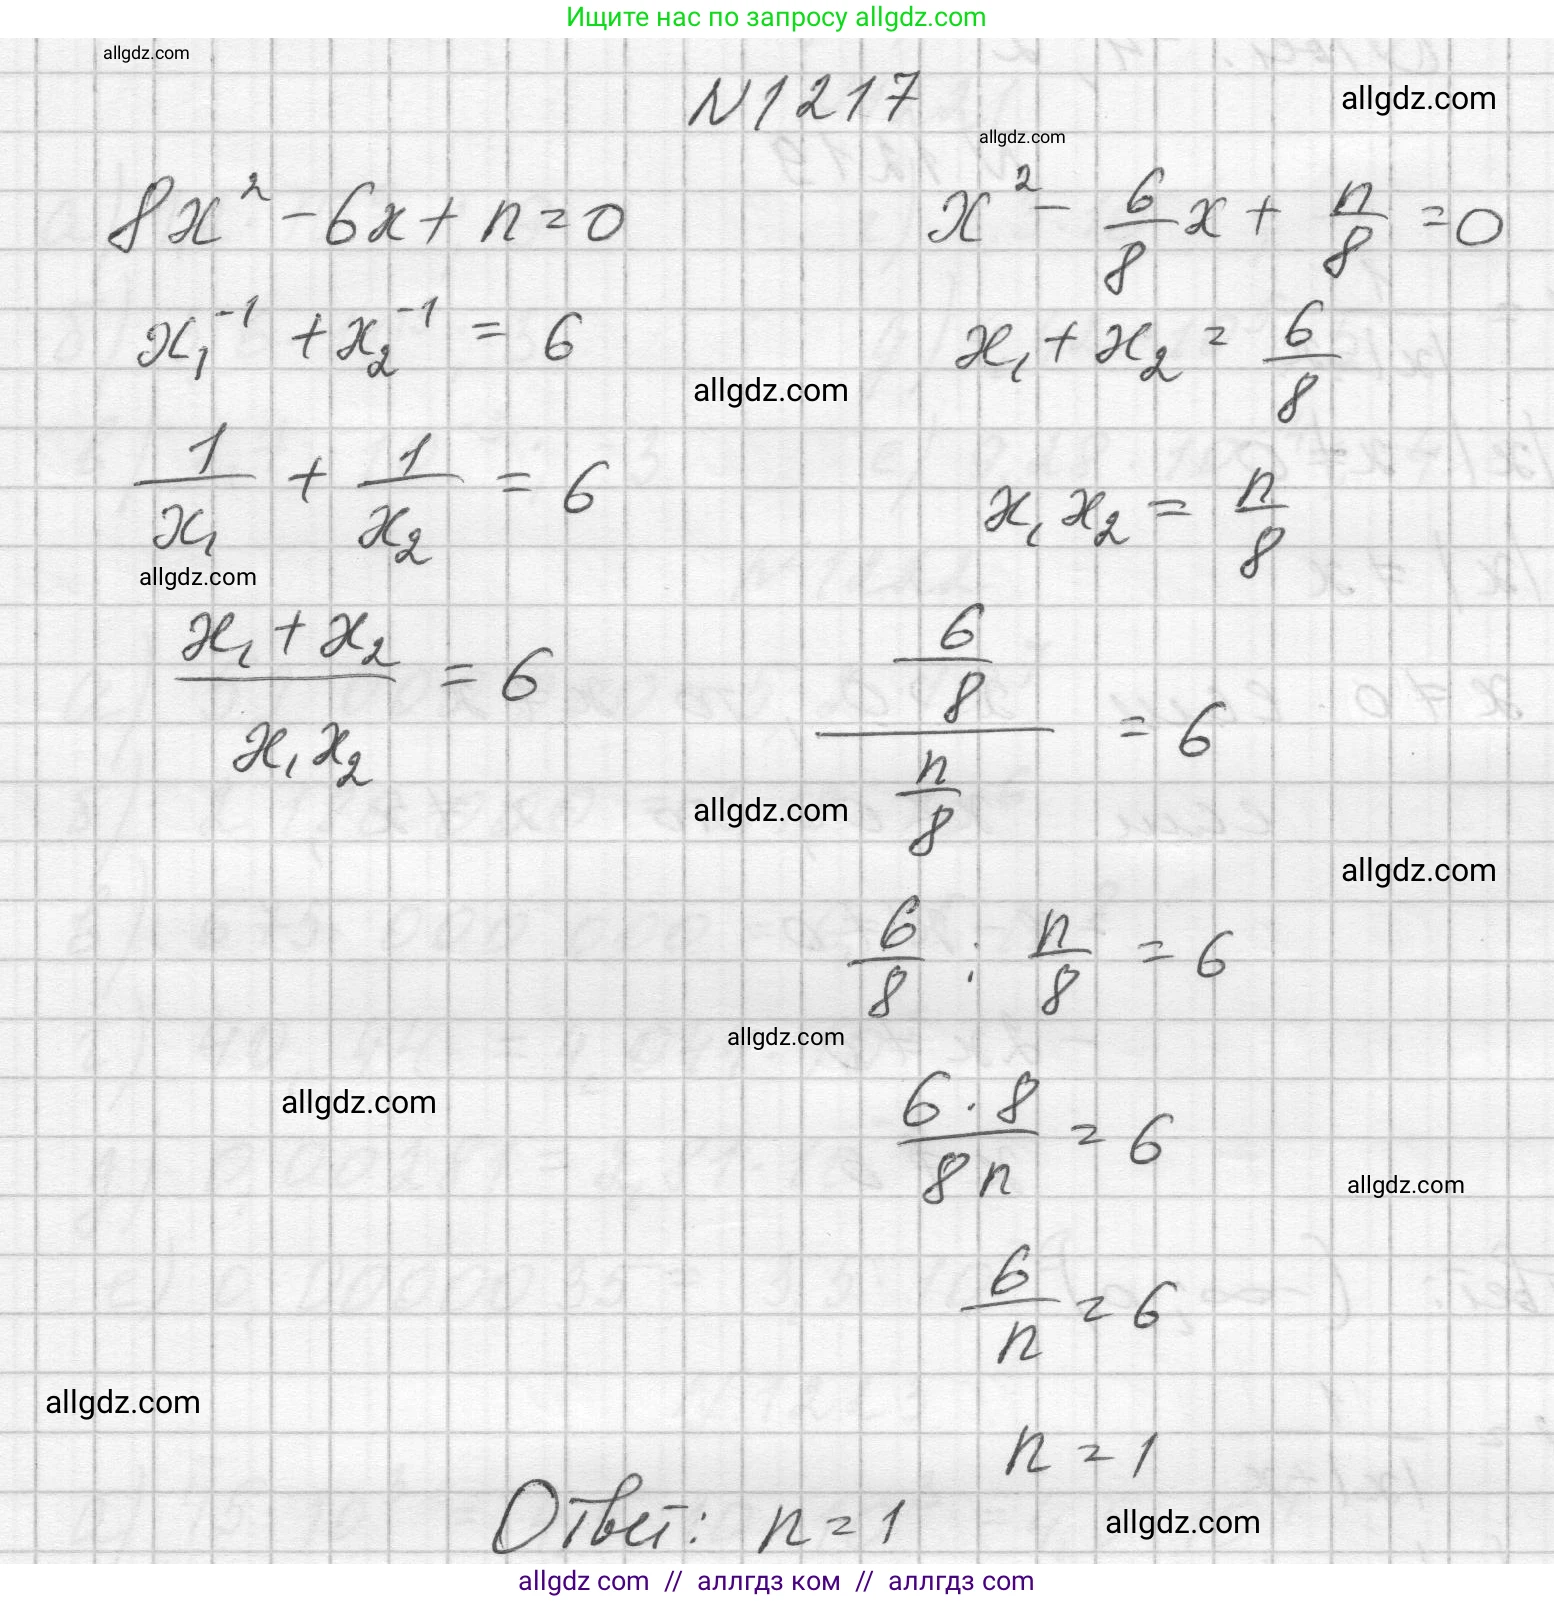 Ищите нас по запросу allgdz.com
allgdz.com
N1217
allgdz.com
allgdz.com
8x² - 6x + n = 0
x² - 6/8 x + n/8 = 0
x₁⁻¹ + x₂⁻¹ = 6
x₁ + x₂ = 6/8
allgdz.com
1/x₁ + 1/x₂ = 6
x₁x₂ = n/8
allgdz.com
(x₁ + x₂)/(x₁x₂) = 6
(6/8)/(n/8) = 6
allgdz.com
allgdz.com
6/8 : n/8 = 6
allgdz.com
allgdz.com
(6 · 8)/(8n) = 6
allgdz.com
6/n = 6
allgdz.com
n = 1
Ответ: n = 1
allgdz.com
allgdz com // аллгдз ком // аллгдз com